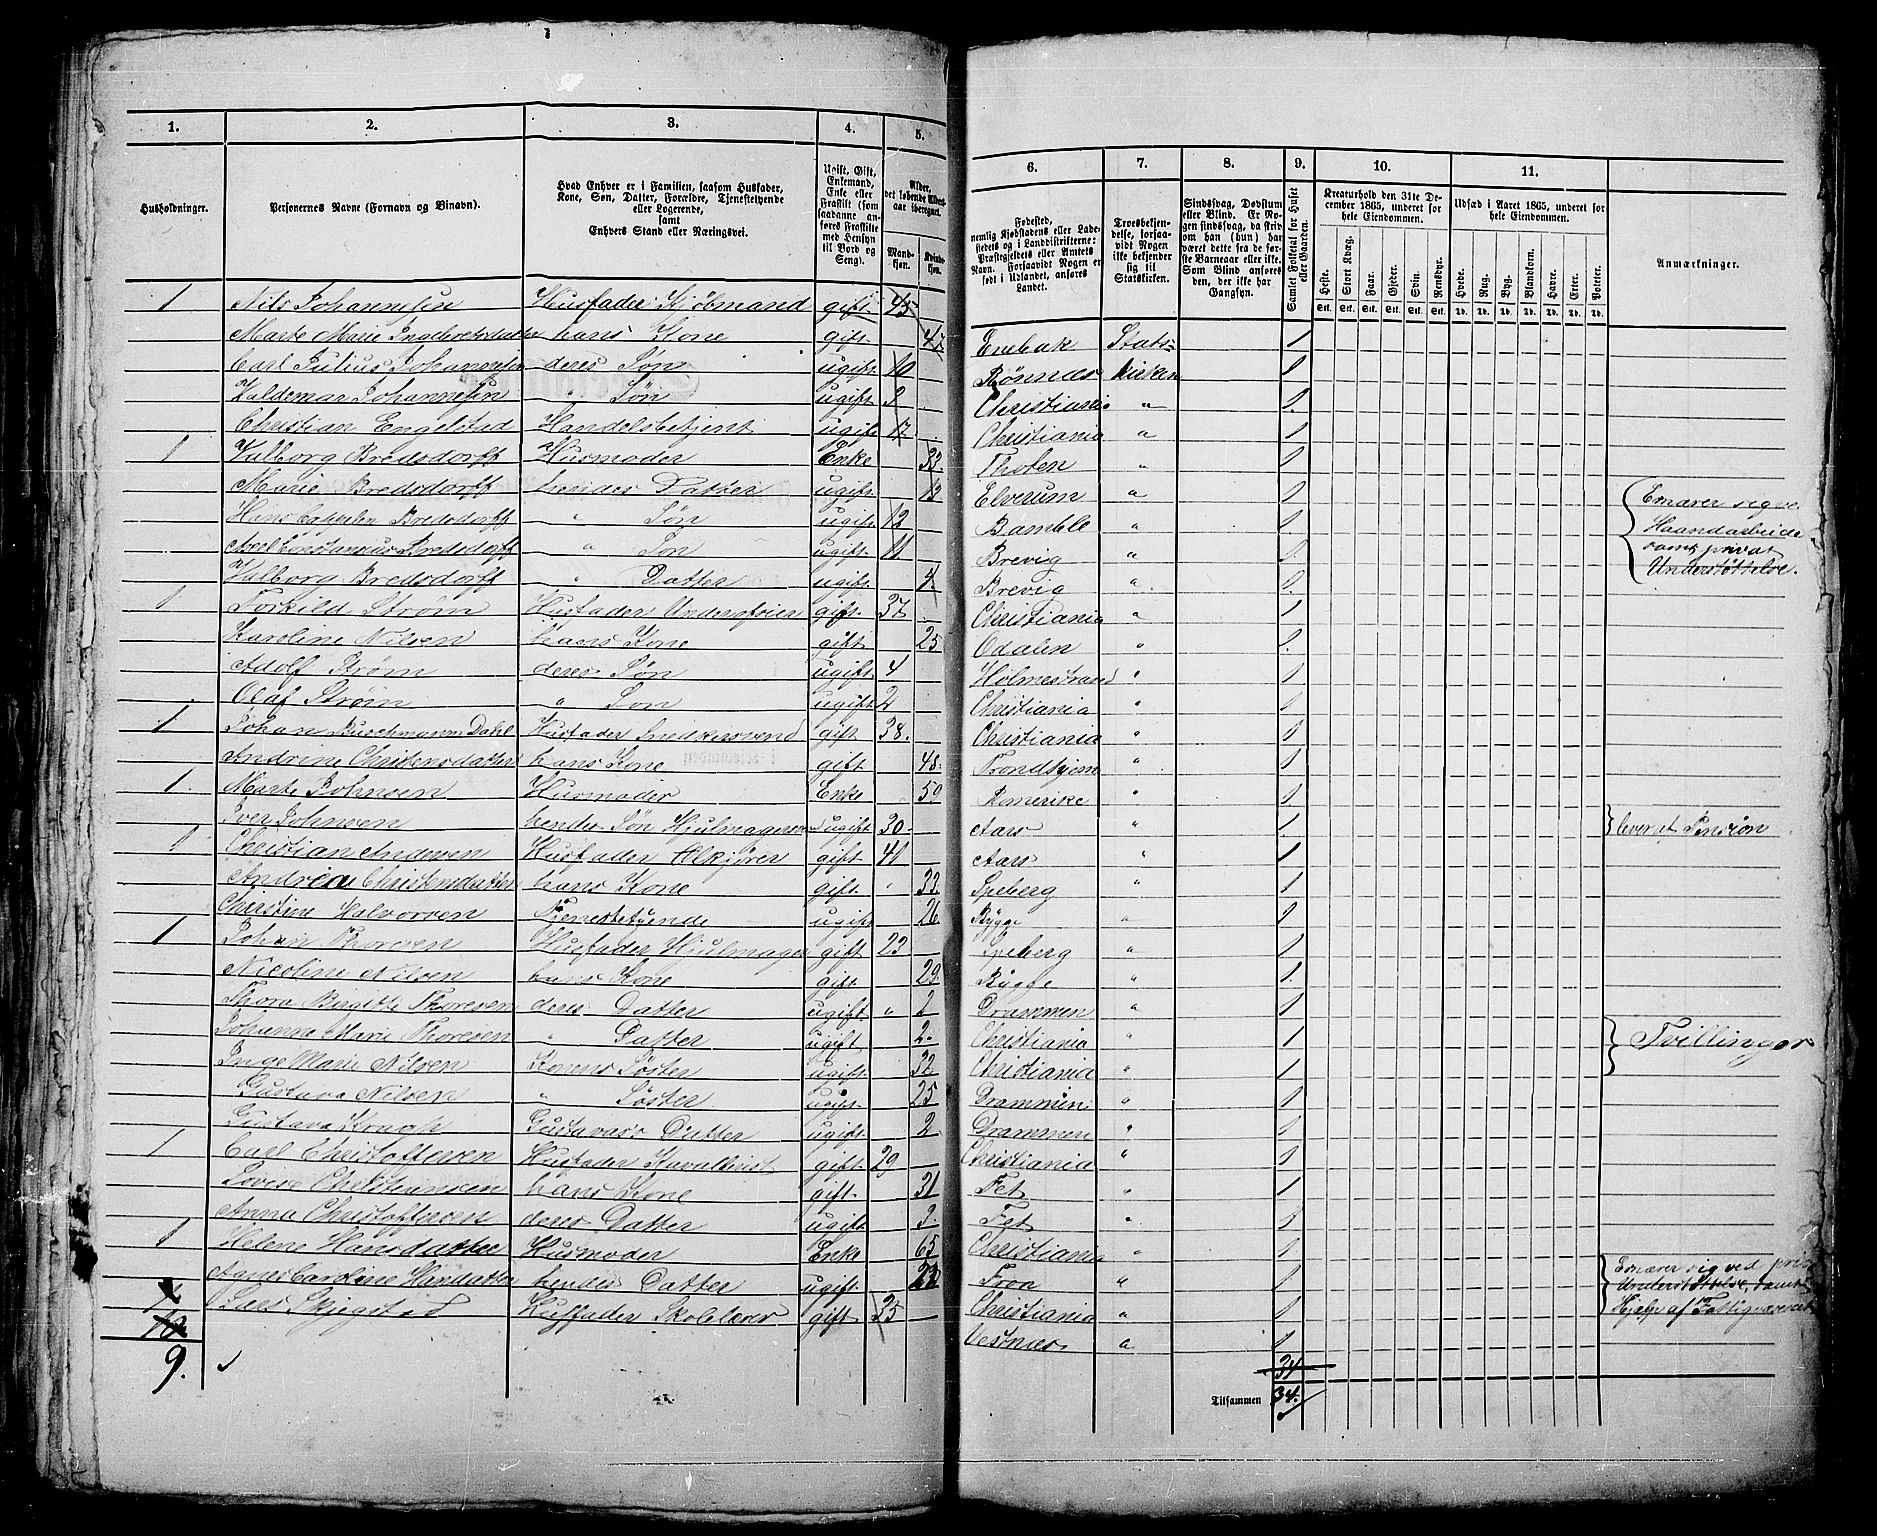 1. 2. 3. 4. 5.
Husholdninger. Personernes Navne (Fornavn og Binavn). Hvad Enhver er i Familien, saasom Husfader, Kone, Søn, Datter, Forældre, Tjenestetyende eller Logerende, samt Enhvers Stand eller Næringsvei. Ugift, Gift, Enkemand, Enke eller Fraskilt (som saadanne anføres Fraskilte med Hensyn til Bord og Seng). Alder, det løbende Aldersaar iberegnet. Mandkjøn. Kvindekjøn.
1 Nils Johannesen Husfader Kjøbmand gift 45
Marte Marie Ingebretsdatter hans Kone gift 47
Carl Julius Johannesen deres Søn ugift 10
Valdemar Johannesen " Søn ugift 3
Christian Engelstad Handelsbetjent ugift 17
1 Valborg Bredsdorff Husmoder Enke 33
Marie Bredsdorff hendes Datter ugift 13
Hans Cappelen Bredsdorff " Søn ugift 12
Axel Constantius Bredsdorff " Søn ugift 11
Valborg Bredsdorff " Datter ugift
1 Torkild Strøm Husfader Underofficer gift 37
Karoline Nilsen hans Kone gift 25
Adolf Strøm deres Søn ugift 4
Olaf Strøm " Søn ugift 2
1 Johan Buschmann Dahl Husfader Snedkersvend gift 38
Andrine Christensdatter hans Kone gift 48
1 Marte Johnsen Husmoder Enke 59
Iver Johnsen hendes Søn Hjulmagersvend ugift 30
1 Christian Andersen Husfader Ølkjører gift 41
Andrea Christensdatter hans Kone gift " 33
Christine Halvorsen Tjenestetyende ugift 26
1 Johan Thoresen Husfader Hjulmager gift 23
Nicoline Nilsen hans Kone gift 29
Thora Birgitte Thoresen deres Datter ugift " 2
Johanne Marie Thoresen " Datter ugift 2
Inge Marie Nilsen Konens Søster ugift 32
Gustava Nilsen " Søster ugift 25
Gustava Kragh Gustavas Datter ugift 2
1 Carl Christoffersen Husfader Kavallerist gift 29
Lovise Christiansen hans Kone gift 31
Anna Christoffersen deres Datter ugift 3
1 Helene Hansdatter Husmoder Enke 65
Agnes Caroline Hansdatter hendes Datter ugift 22
Lars Skjegstad Husfader Skolelærer gift 35
10
9.
6. 7. 8. 9. 10. 11.
Fødested, nemlig Kjøbstadens eller Ladestedets og i Landdistrikterne: Præstegjeldets eller Amtets Navn. Forsaavidt Nogen er født i Udlandet, anføres Landet. Troesbekjendelse, forsaavidt Nogen ikke bekjender sig til Statskirken. Sindssvag, Døvstum eller Blind. Er Nogen sindssvag, da skriv om han (hun) har været dette fra de første Barneaar eller ikke. Som Blind anføres den, der ikke har Gangsyn. Samlet Folketal for Huset eller Gaarden. Kreaturhold den 31te December 1865, underet for hele Eiendommen. Udsæd i Aaret 1865, underet for hele Eiendommen. Anmærkninger.
Heste. Stort Kvæg. Faar. Gjeder. Svin. Rensdyr. Hvede. Rug. Byg. Blandkorn. Havre. Erter. Poteter.
Stk. Stk. Stk. Stk. Stk. Stk. Td. Td. Td. Td. Td. Td. Td.
Enebak Stats- 1
Rønnæs kirken 1
Christiania " 1
Christiania " 1
Thoten " 1
Elverum " 1
Bamble " 1
Brevig " 1
Brevig " 1
Christiania " 1
Odalen " 1
Holmestrand " 1
Christiania " 1
Christiania " 1
Trondhjem " 1
Romerike " 1
Aas " 1
Aas " 1
Speberg " 1
Rygge " 1
Speberg " 1
Rygge " 1
Drammen " 1
Christiania " 1
Christiania " 1
Drammen " 1
Drammen " 1
Christiania " 1
Fet " 1
Fet " 1
Christiania " 1
Fron " 1
Christiania " 1
Vestnæs " 1
34
Tilsammen 34.
Ernærer sig ve
Haandarbeide
samt privat
Understøttelse.
lever af Pension
Tvillinger
Ernærer sig ved priv
Understøttelse, samt
Hjelp af Fattigvæsenet